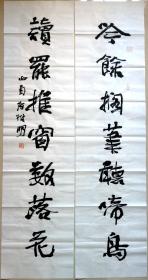 吟餘擱筆聽啼鳥
讀罷推窗數落花